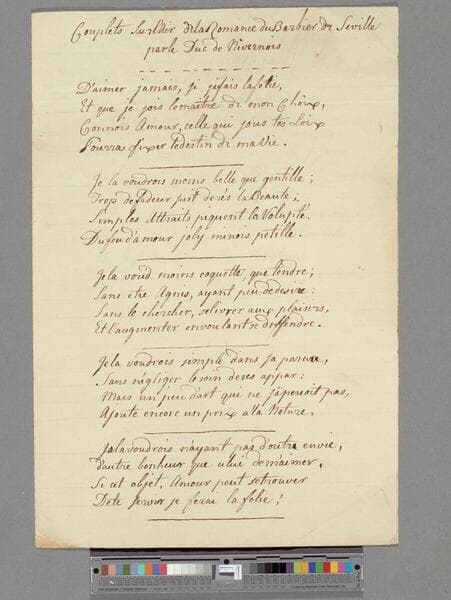 Couplets Sur l'Air de la Romance du Barbier de Seville
par le Duc de Nivernois
D'aimer jamais, si je fais la folie,
Et que je sois le maitre de mon Choix,
Connois Amour, celle qui sous tes Loix
Pourra fixer le destin de ma Vie.
Je la voudrois moins belle que gentille;
Trop de fadeur suit de près la Beauté;
Simples Attraits piquent la Volupté.
Du feu d'amour joly minois petille.
Je la voud moins coquette, que tendre;
Sans etre Agnès, ayant peu de desirs:
Sans le chercher, se livrer aux plaisirs,
Et l'augmenter en voulant se deffendre.
Je la voudrois simple dans sa parure,
Sans négliger le soin de ses appas:
Mais un peu d'art qui ne s'aperçoit pas,
Ajoute encore un prix a la Nature.
Je la voudrois n'ayant pas d'autre envie,
d'autre bonheur que celui de m'aimer,
Si cet objet, Amour peut se trouver
De te servir je ferai la folie;